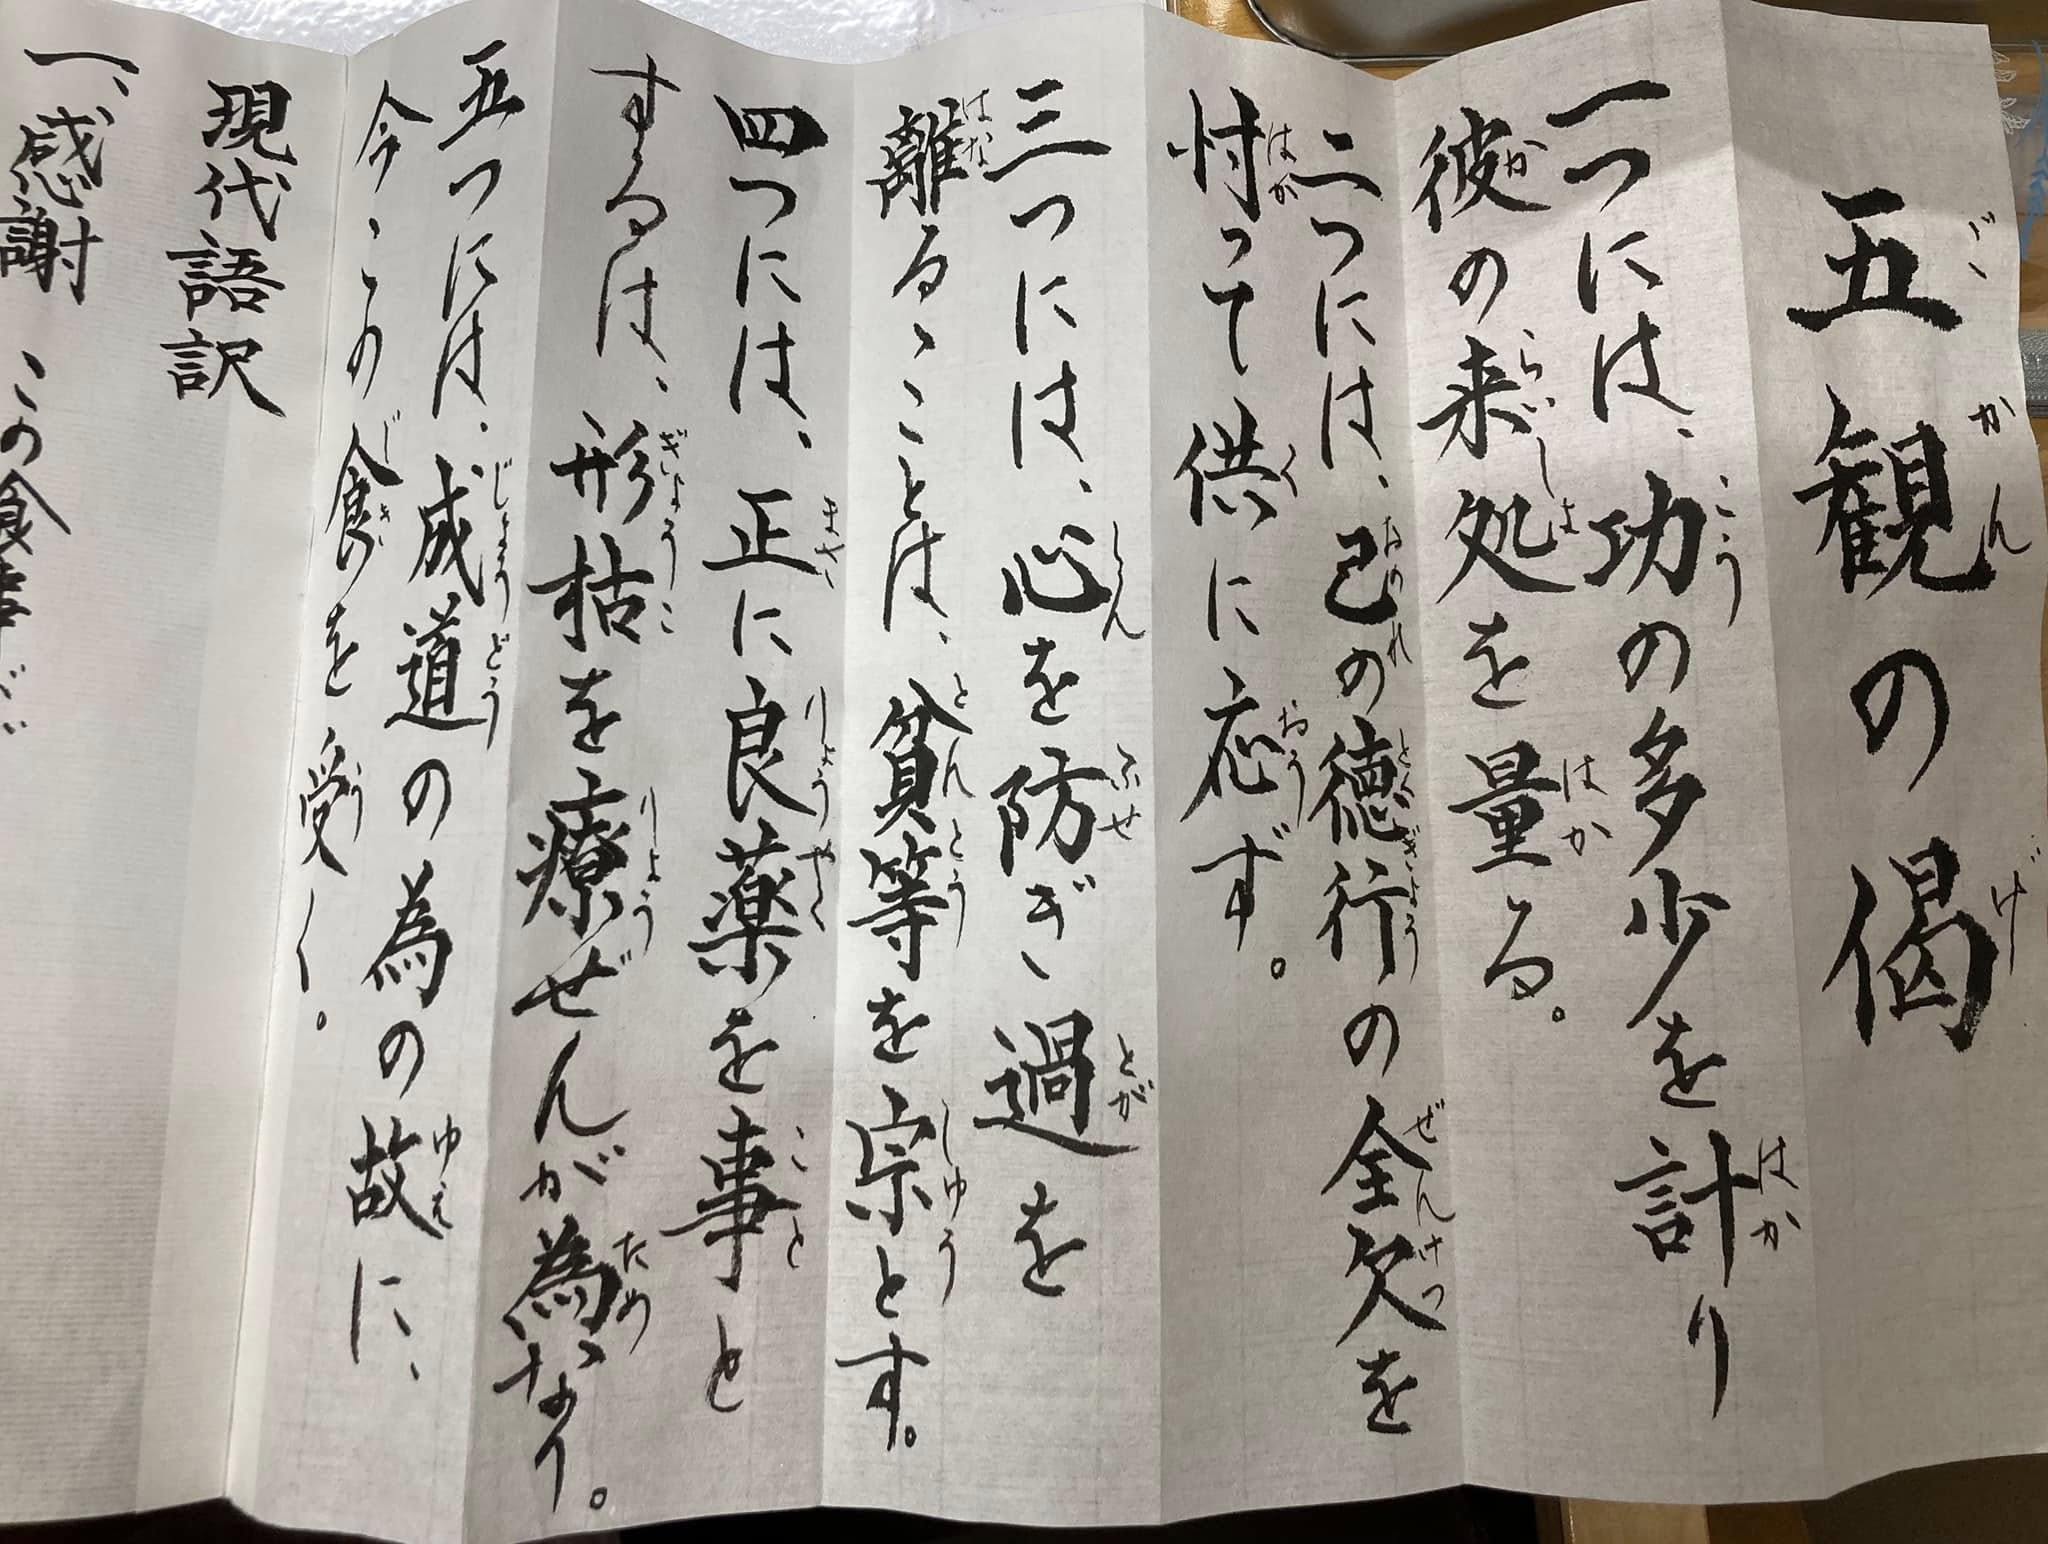 五観の偈
一つには、功の多少を計り
彼の来処を量る。
二つには、己の徳行の全欠を
忖って供に応ず。
三つには、心を防ぎ過を
離るゝことは、貪等を宗とす。
四つには、正に良薬を事と
するは、形枯を療ぜんが為なり。
五つには、成道の為の故に、
今この食を受く。
現代語訳
一、感謝 この食事が